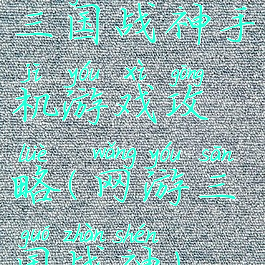 三国战神手
jī yóu xì gōng
机游戏攻
lüè wǎng yóu sān
略(网游三
guó zhàn shén
国战神)